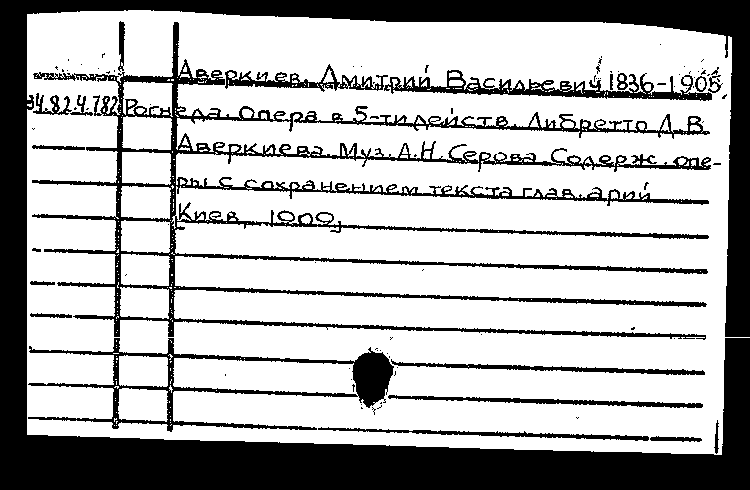 Аверкиев, Дмитрий Васильевич 1836-1905
34.82.4.782 Рогнеда. Опера в 5-ти действ. Либретто Д.В.
Аверкиева. Муз. А.Н. Серова. Содерж. опе-
ры с сохранением текста глав. арий
Киев, 1900,